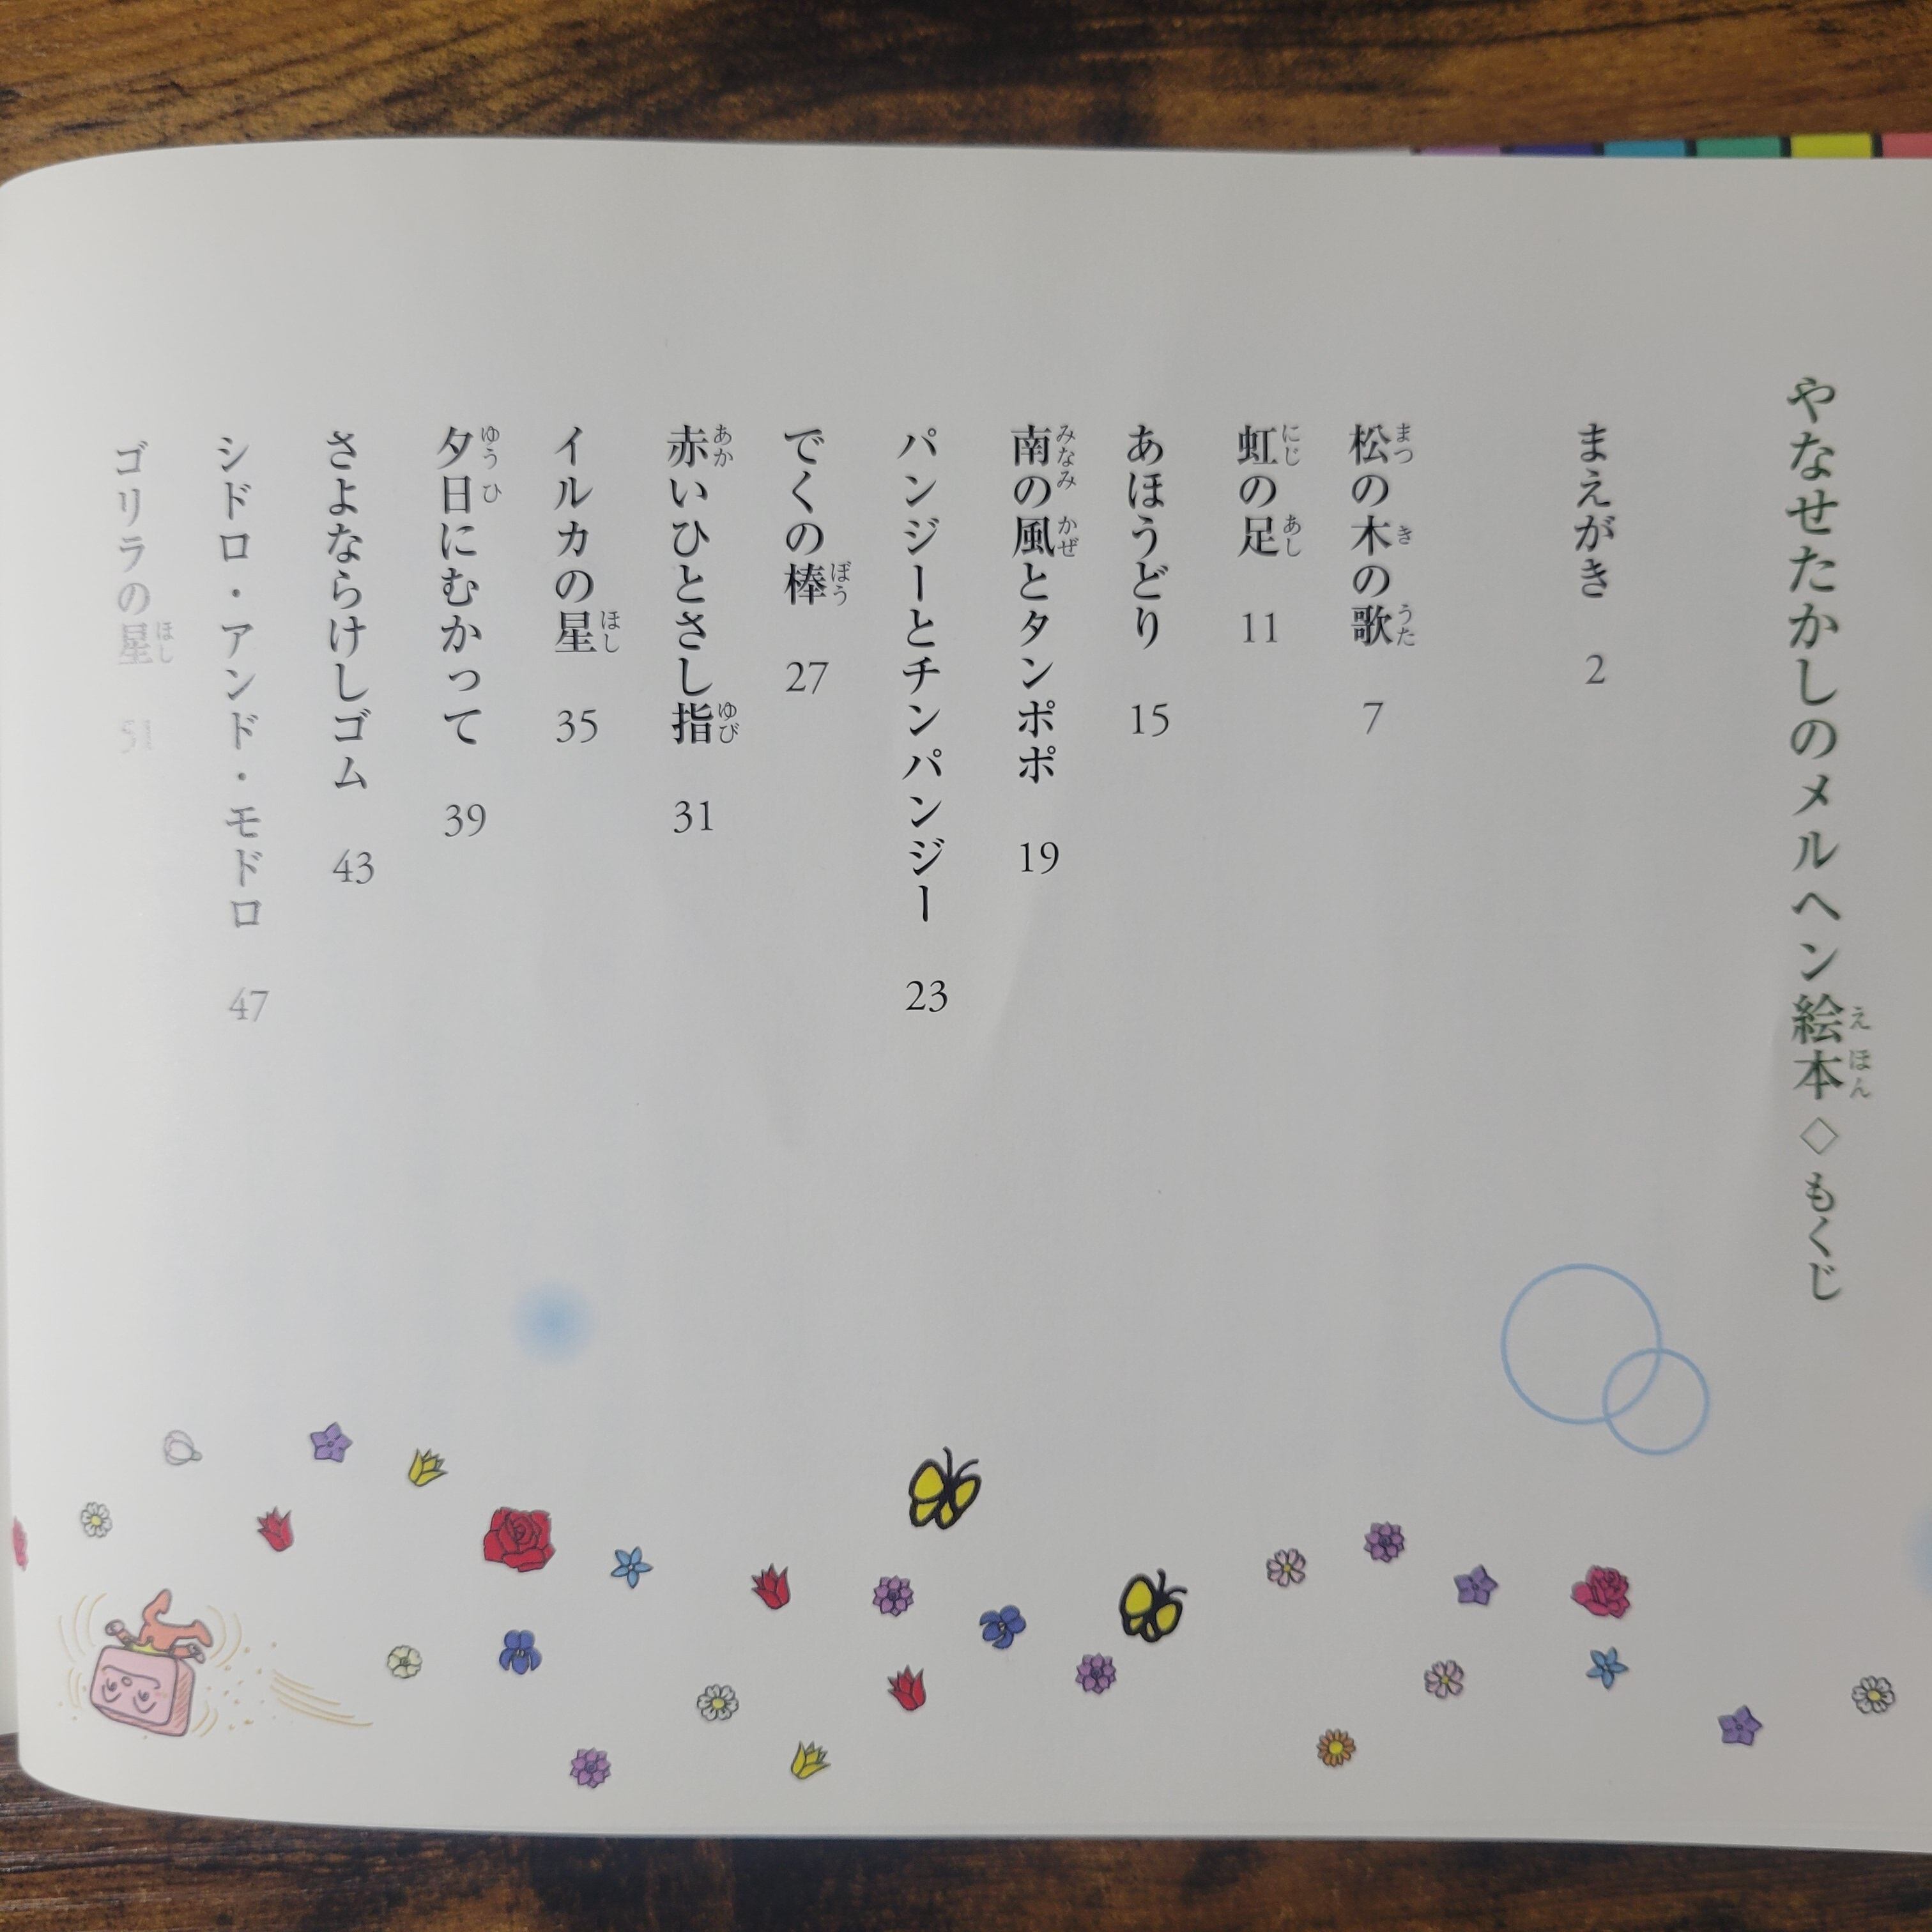 やなせたかしのメルヘン絵本◇もくじ
まえがき 2
松の木の歌 7
虹の足 11
あほうどり 15
南の風とタンポポ 19
パンジーとチンパンジー 23
でくの棒 27
赤いひとさし指 31
イルカの星 35
夕日にむかって 39
さよならけしゴム 43
シドロ・アンド・モドロ 47
ゴリラの星 51